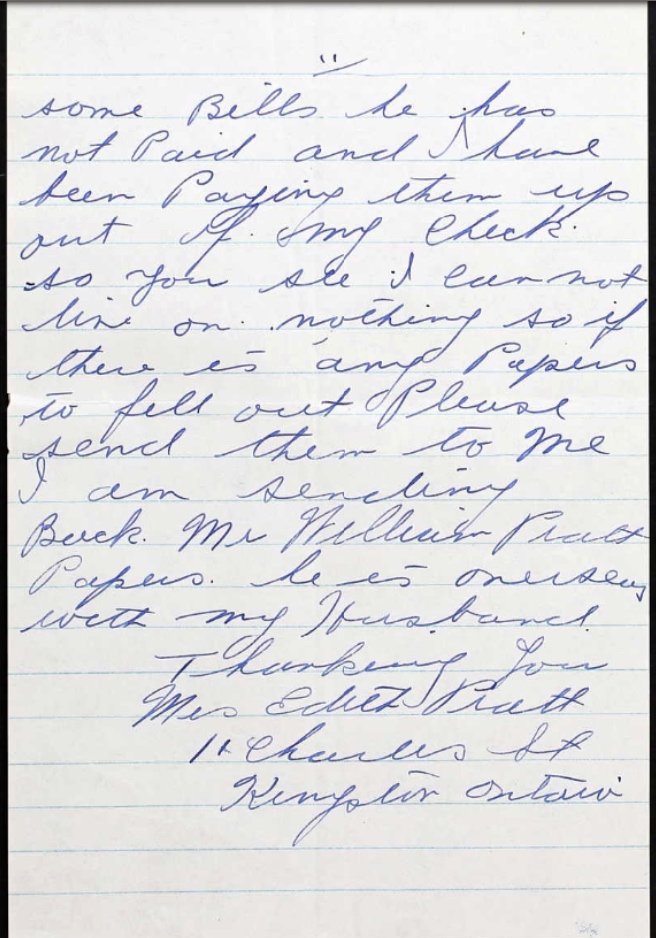 "
some Bills he has
not Paid and I have
been Paying them up
out of my Check.
so you see I can not
live on nothing so if
there is any Papers
to fell out Please
send them to Me
I am sending
Back Mr William Pratt
Papers. he is overseas
with my Husband.
Thanking You
Mrs Edith Pratt
Charles St
Kingston Ontario